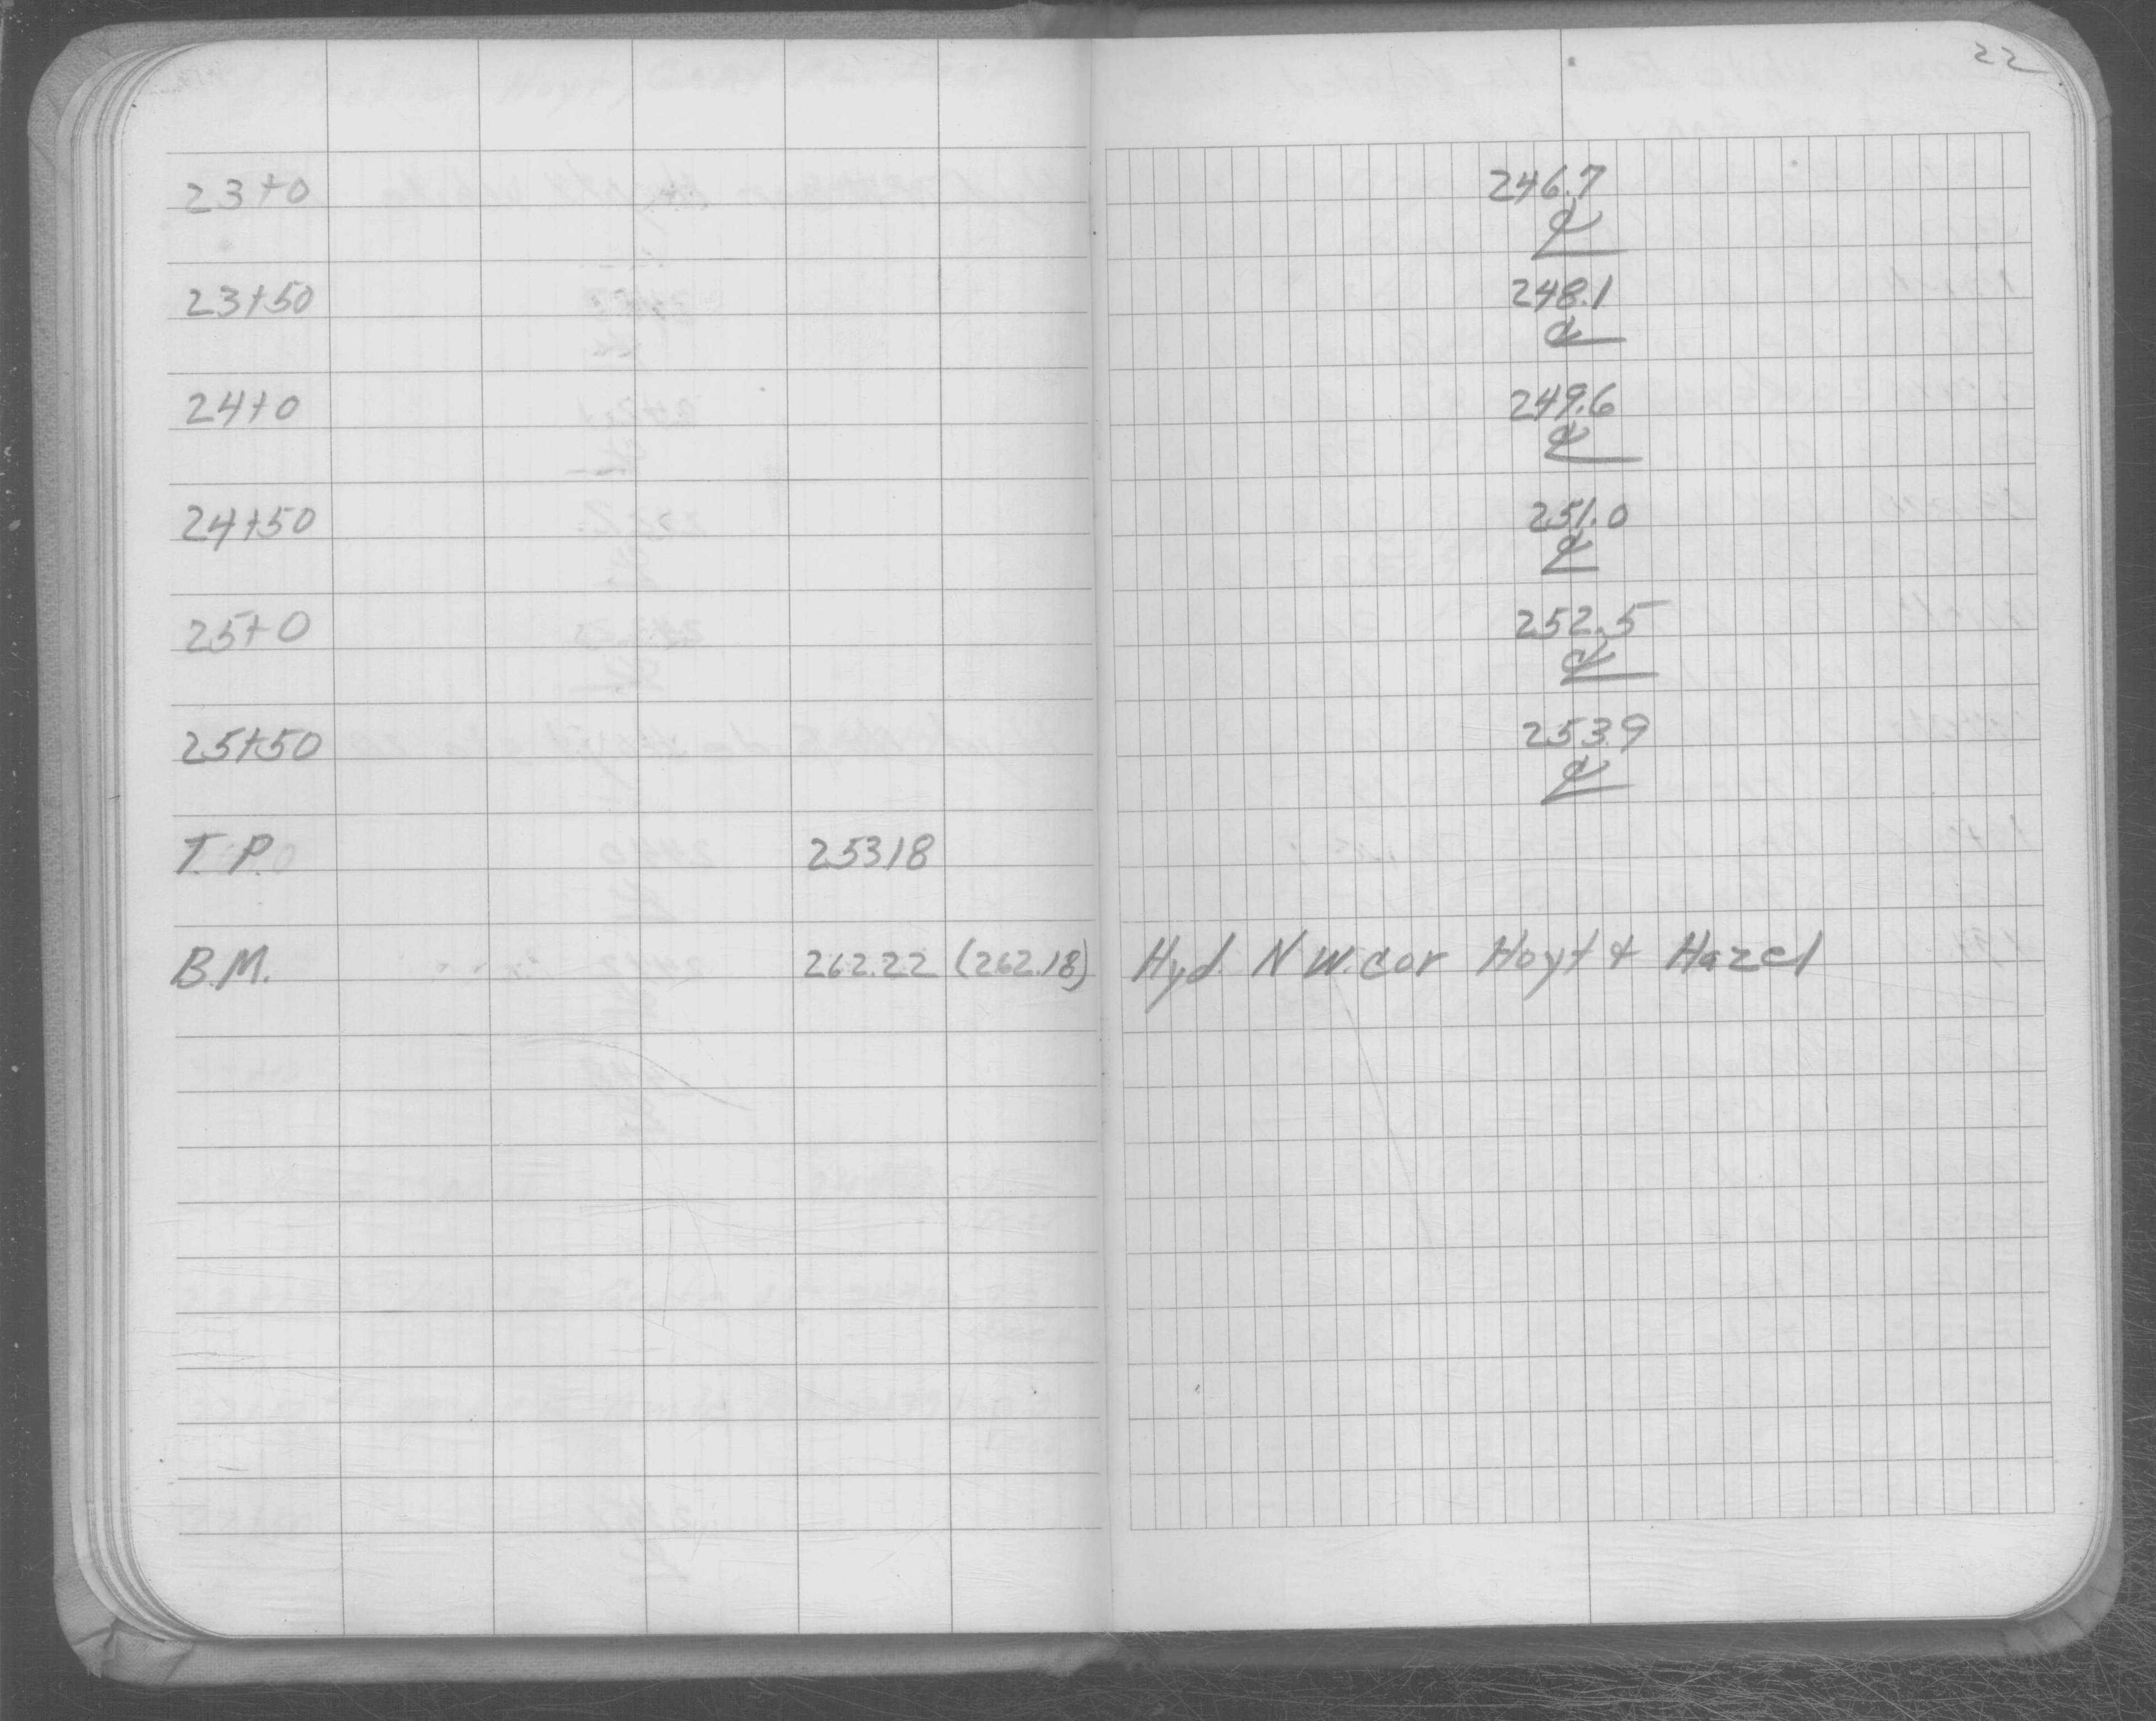 22
23+0 246.7
℄
23+50 248.1
℄
24+0 249.6
℄
24+50 251.0
℄
25+0 252.5
℄
25+50 253.9
℄
T.P. 253.18
B.M. 262.22 (262.18) Hyd. N W. cor Hoyt & Hazel